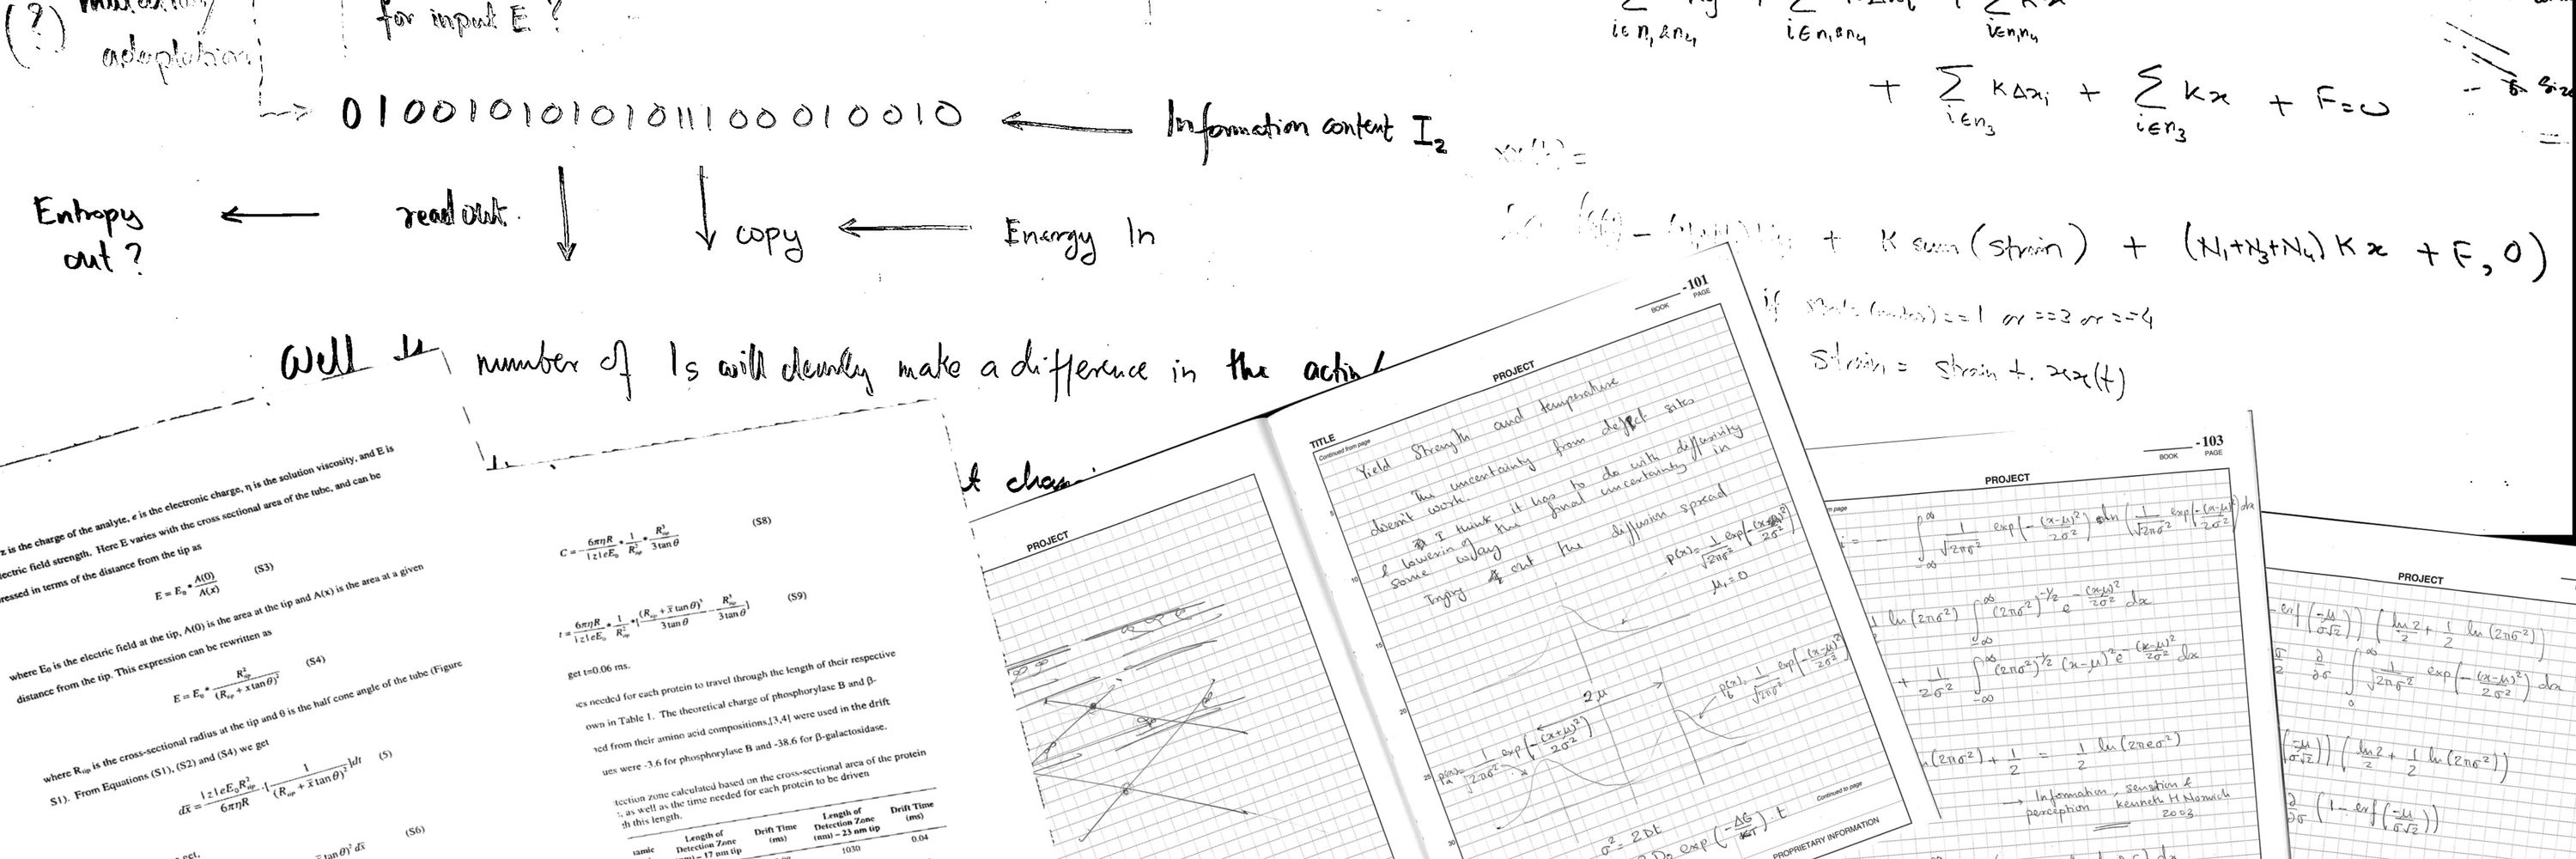 (?)
adaptation
for input E ?
01001010101011100010010 ← Information content I₂
Entropy out ?
← read out.
↓ ↓ copy ← Energy In
Well
number of 1s will clearly make a difference in the
i∈n₁&n₄ i∈n₁&n₄ i∈n₁n₄
+ Σ KΔxᵢ + Σ Kx + F=0
i∈n₃ i∈n₃
+ K sum (strain) + (N₁+N₃+N₄) K x + F, 0)
if ==1 or ==3 or ==4
strain = strain + xx(t)
z is the charge of the analyte, e is the electronic charge, η is the solution viscosity, and E is
electric field strength. Here E varies with the cross sectional area of the tube, and can be
ressed in terms of the distance from the tip as
E = E₀ * A(0)/A(x) (S3)
where E₀ is the electric field at the tip, A(0) is the area at the tip and A(x) is the area at a given
distance from the tip. This expression can be rewritten as
E = E₀ * R²tip/(Rtip + x tan θ)² (S4)
where Rtip is the cross-sectional radius at the tip and θ is the half cone angle of the tube (Figure
S1). From Equations (S1), (S2) and (S4) we get
dx̄ = |z|eE₀R²tip/6πηR · [1/(Rtip + x̄ tan θ)²]dt (5)
(S6)
tan θ)² dx̄
C = - 6πηR/|z|eE₀ * 1/R²tip * R³tip/3tan θ (S8)
t = 6πηR/|z|eE₀ * 1/R²tip * [(Rtip + x̄ tan θ)³/3tan θ - R³tip/3tan θ] (S9)
get t=0.06 ms.
es needed for each protein to travel through the length of their respective
own in Table 1. The theoretical charge of phosphorylase B and β-
ned from their amino acid compositions,[3,4] were used in the drift
ues were -3.6 for phosphorylase B and -38.6 for β-galactosidase.
tection zone calculated based on the cross-sectional area of the protein
, as well as the time needed for each protein to be driven
gh this length.
Length of Detection Zone 17 nm tip
Drift Time (ms)
Length of Detection Zone (nm) – 23 nm tip
Drift Time (ms)
1030 0.04
PROJECT
-101
BOOK PAGE
PROJECT
TITLE
Continued from page
Yield Strength and temperature
The uncertainty from defect sites
doesn't work.
I think it has to do with diffusivity
& lowering of the final uncertainty in
some way
Trying out the diffusion spread
p(x) = 1/√2πσ² exp(-(x-μ)²/2σ²)
μ=0
2μ
1/√2πσ² exp(-(x+μ)²/2σ²)
1/√2πσ² exp(-(x-μ)²/2σ²)
σ² = 2Dt
exp(-ΔG/KT) · t
Continued to page
PROPRIETARY INFORMATION
-103
BOOK PAGE
PROJECT
= - ∫ 1/√2πσ² exp(-(x-μ)²/2σ²) ln(1/√2πσ² exp(-(x-μ)²/2σ²)) dx
ln(2πσ²) ∫ (2πσ²)^-1/2 e^-(x-μ)²/2σ² dx
+ 1/2σ² ∫ (2πσ²)^-1/2 (x-μ)² e^-(x-μ)²/2σ² dx
(2πσ²) + 1/2 = 1/2 ln(2πeσ²)
→ Information, sensation &
perception Kenneth H Norwich
2003
PROJECT
erf(-μ/σ√2)) (ln2/2 + 1/2 ln(2πσ²))
∂/∂σ ∫ 1/√2πσ² exp(-(x-μ)²/2σ²) dx
(-μ/σ√2)) (ln2/2 + 1/2 ln(2πσ²))
∂/∂σ (1 - erf(-μ/σ√2))